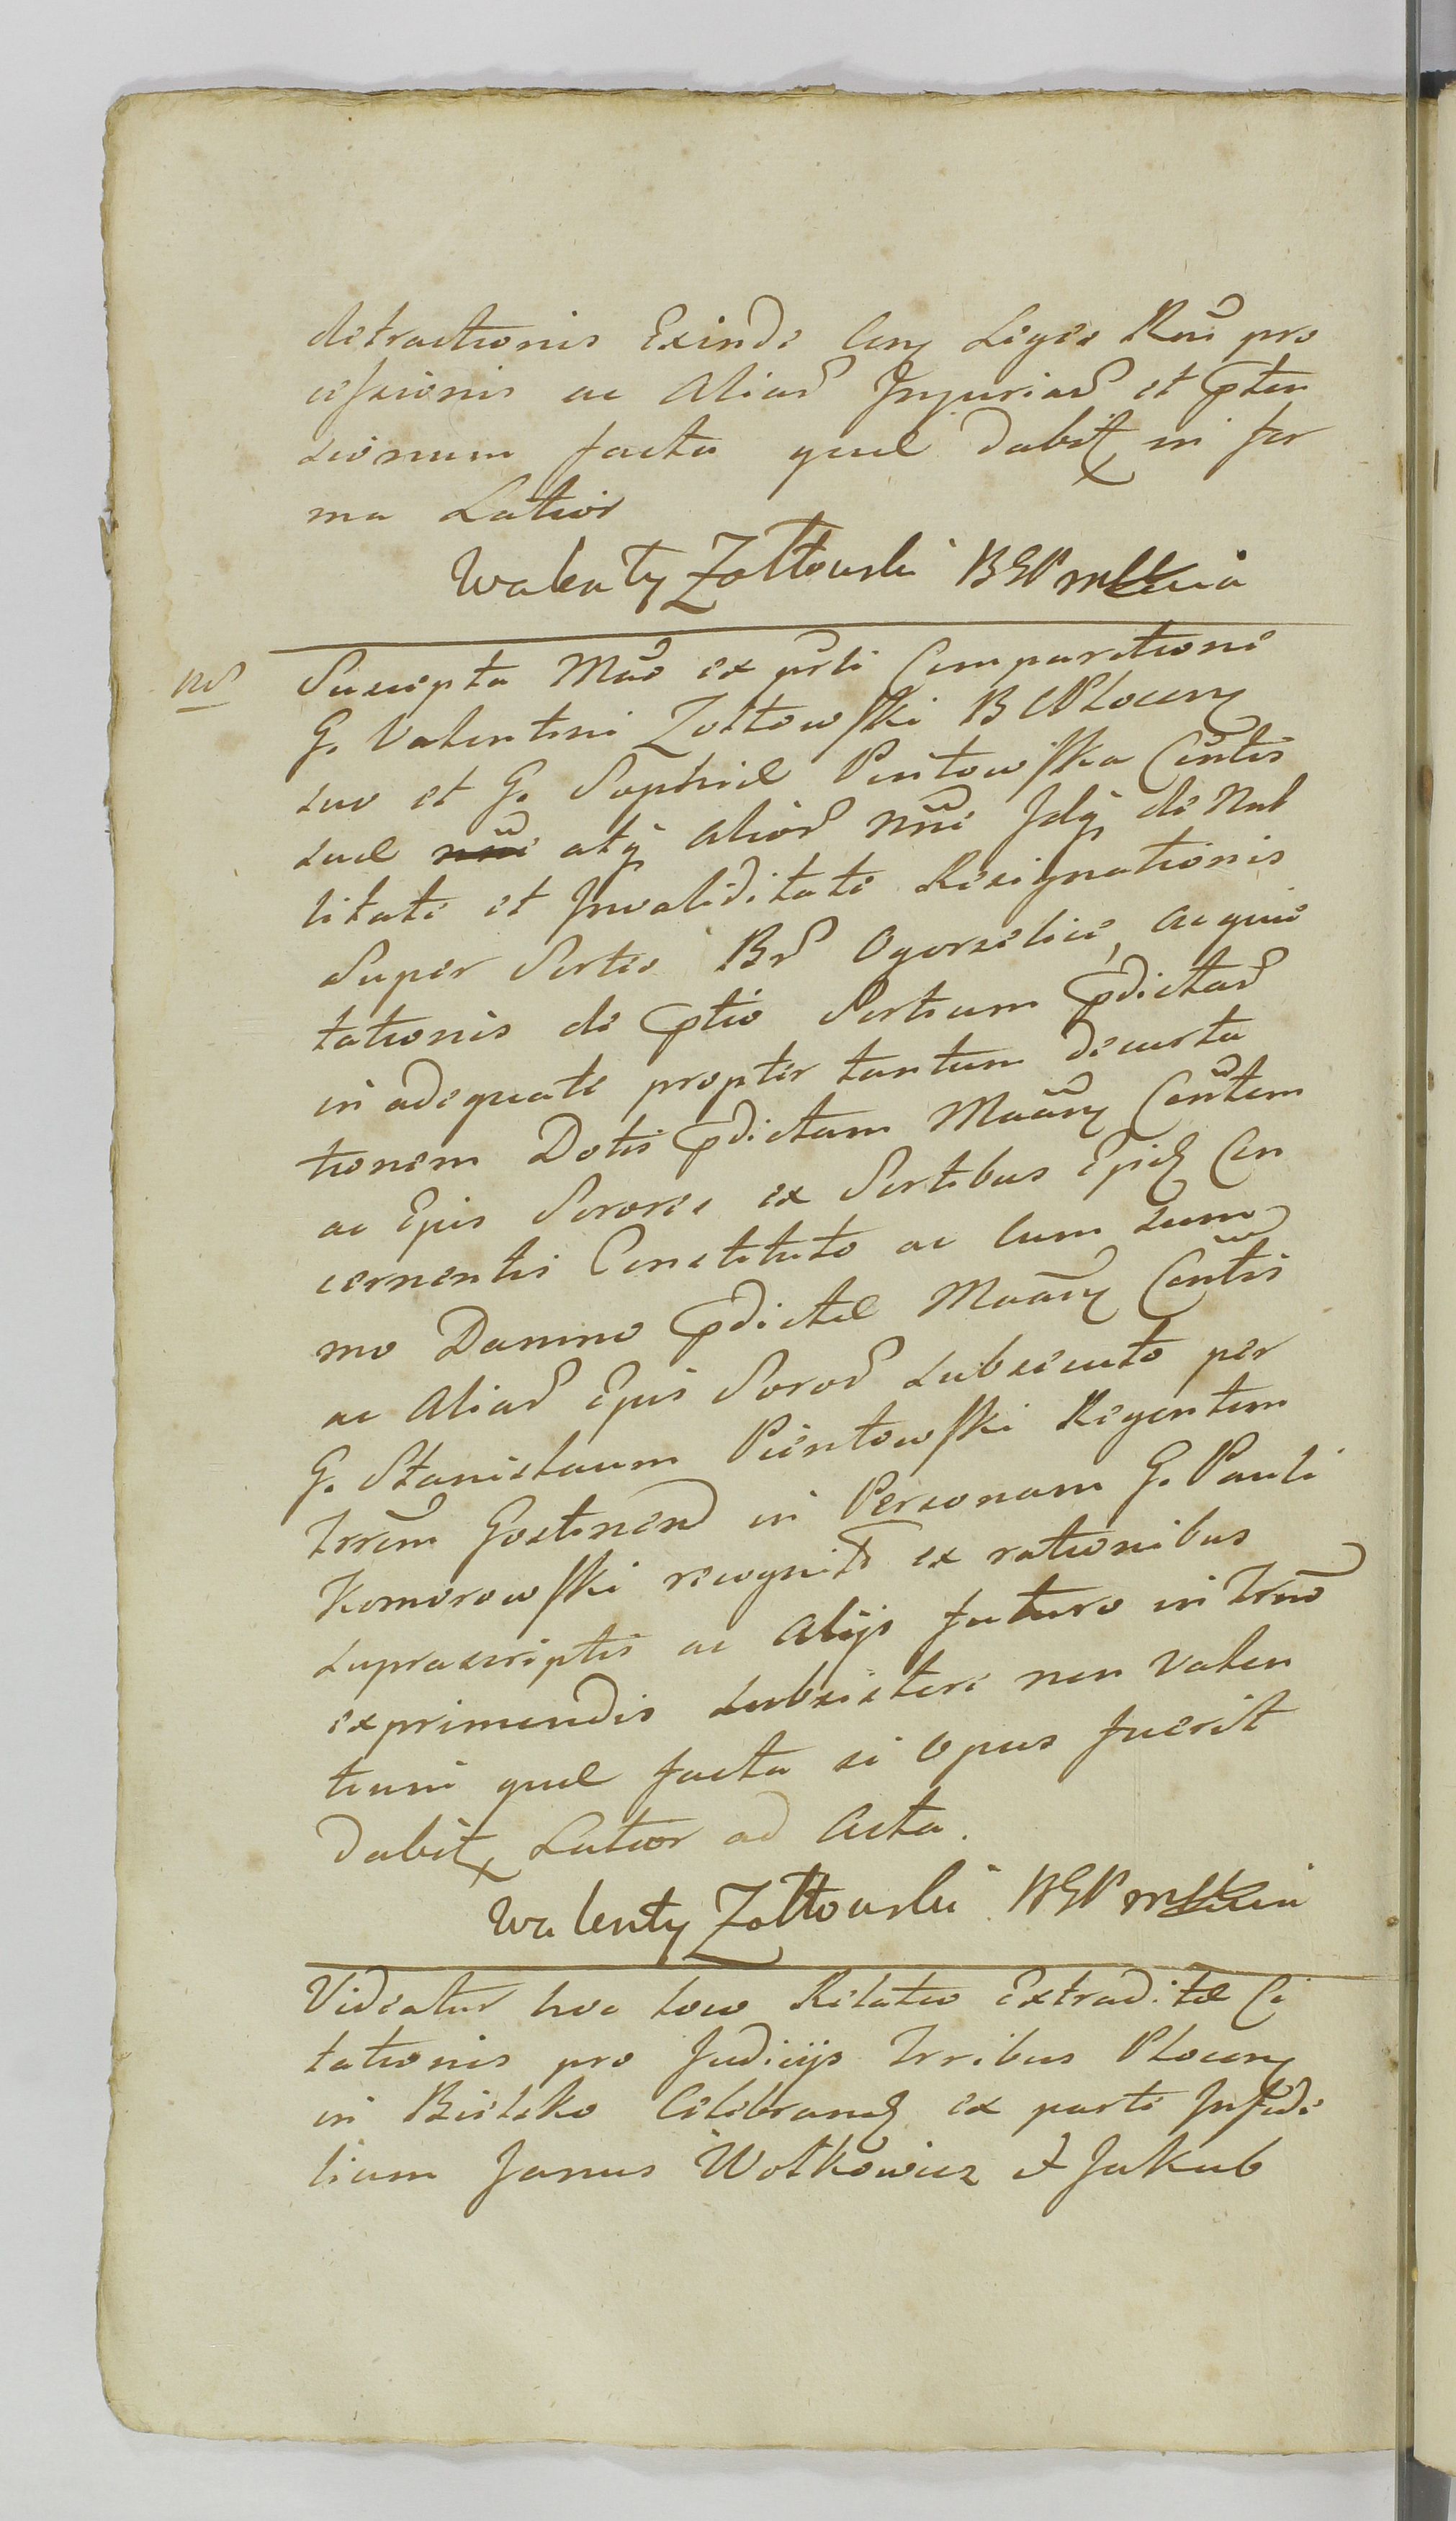 detractionis Exinde Cun Leges Rni pro
cessionis ac Aliar Injuriar et pten
sionum facta quæ dabit in for
ma Latior
Walenty Zołtowski BGP mppria
Nos Suscepta Mao ex prti Comparitione
G. Valentini Zołtowski B CPlocen
suo et G. Sophiæ Pientowska Contis
suæ atq alior nnie fdq de Nul
litate et Invaliditate Resignationis
Super Sortes Br Ogorzelice, ac quie
tationis de ptio Sortium pdictar
in adequate propter tantum decurta
tionem Dotis pdictam Maān Contem
ac Ejus Sorores ex Sortibus Ejsd Con
cernentis Constituto ac cum sum
mo Damno pdictæ Maān Contis
ac Aliar Ejus Soror subsecuto per
G. Stanislaum Pientowski Regentem
Trrem Gostinen in Personam G. Pauli
Komorowski recognit ex rationibus
suprascriptis ac alijs futuro in Trno
exprimendis subsistere non valen
tium quæ facta si opus fuerit
Dabit Latior ad Acta.
Walenty Zołtowski BGP mppria
Videatur hoc loco Relatio Extraditæ Ci
tationis pro Judicijs Trribus Plocen
in Bielsko Celebrand ex parte Infide
lium Janus Wolkowicz et Jakub